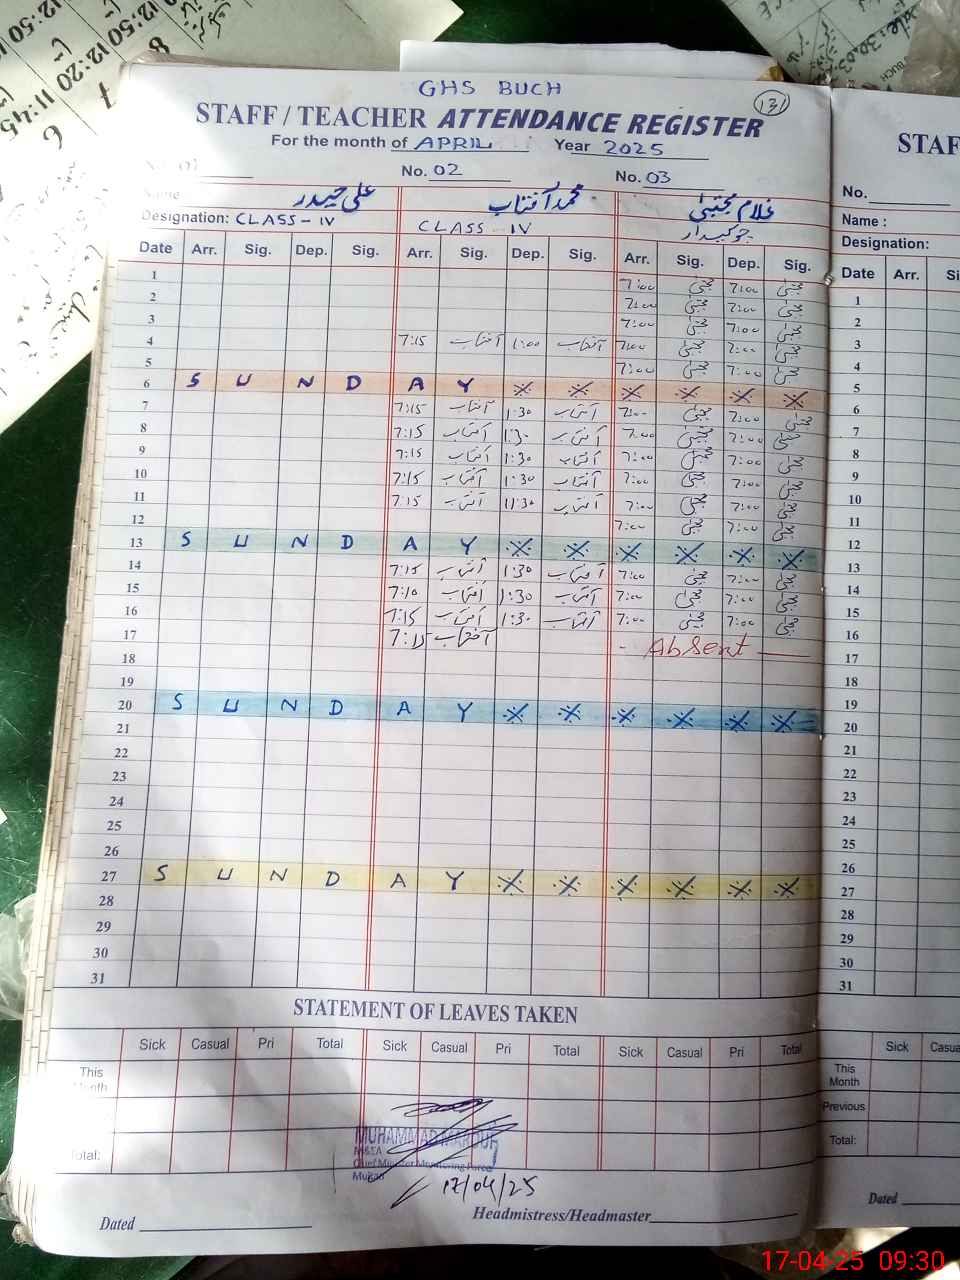 GHS BUCH
131
STAFF / TEACHER ATTENDANCE REGISTER
For the month of APRIL Year 2025
No. 01 No. 02 No. 03
Name علی حیدر محمد آفتاب غلام مجتبیٰ
Designation: CLASS - IV CLASS - IV چوکیدار
Date Arr. Sig. Dep. Sig. Arr. Sig. Dep. Sig. Arr. Sig. Dep. Sig.
1 7:00 مجتبیٰ 7:00 مجتبیٰ
2 7:00 مجتبیٰ 7:00 مجتبیٰ
3 7:00 مجتبیٰ 7:00 مجتبیٰ
4 7:15 آفتاب 1:00 آفتاب 7:00 مجتبیٰ 7:00 مجتبیٰ
5 7:00 مجتبیٰ 7:00 مجتبیٰ
6 S U N D A Y
7 7:15 آفتاب 1:30 آفتاب 7:00 مجتبیٰ 7:00 مجتبیٰ
8 7:15 آفتاب 1:30 آفتاب 7:00 مجتبیٰ 7:00 مجتبیٰ
9 7:15 آفتاب 1:30 آفتاب 7:00 مجتبیٰ 7:00 مجتبیٰ
10 7:15 آفتاب 1:30 آفتاب 7:00 مجتبیٰ 7:00 مجتبیٰ
11 7:15 آفتاب 11:30 آفتاب 7:00 مجتبیٰ 7:00 مجتبیٰ
12 7:00 مجتبیٰ 7:00 مجتبیٰ
13 S U N D A Y
14 7:15 آفتاب 1:30 آفتاب 7:00 مجتبیٰ 7:00 مجتبیٰ
15 7:10 آفتاب 1:30 آفتاب 7:00 مجتبیٰ 7:00 مجتبیٰ
16 7:15 آفتاب 1:30 آفتاب 7:00 مجتبیٰ 7:00 مجتبیٰ
17 7:15 آفتاب Absent
18
19
20 S U N D A Y
21
22
23
24
25
26
27 S U N D A Y
28
29
30
31
STATEMENT OF LEAVES TAKEN
Sick Casual Pri Total Sick Casual Pri Total Sick Casual Pri Total
This
Month
Total:
MUHAMMAD MAROUF
M&EA
Chief Minister Monitoring Force
Multan
17/04/25
Dated Headmistress/Headmaster
STAF
No.
Name :
Designation:
Date Arr. Si
1
2
3
4
5
6
7
8
9
10
11
12
13
14
15
16
17
18
19
20
21
22
23
24
25
26
27
28
29
30
31
Sick Casua
This
Month
Previous
Total:
Dated
12:50
12:50
12:20
11:45
8
7
6
17-04-25 09:30